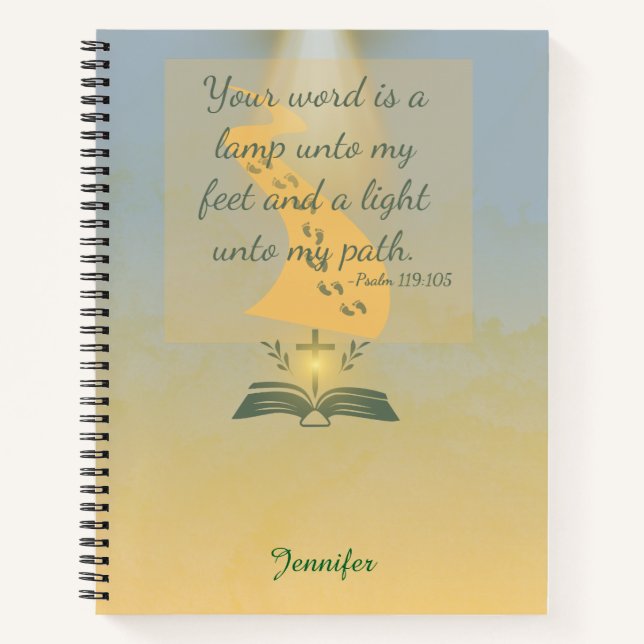 Your word is a
lamp unto my
feet and a light
unto my path.
-Psalm 119:105
Jennifer